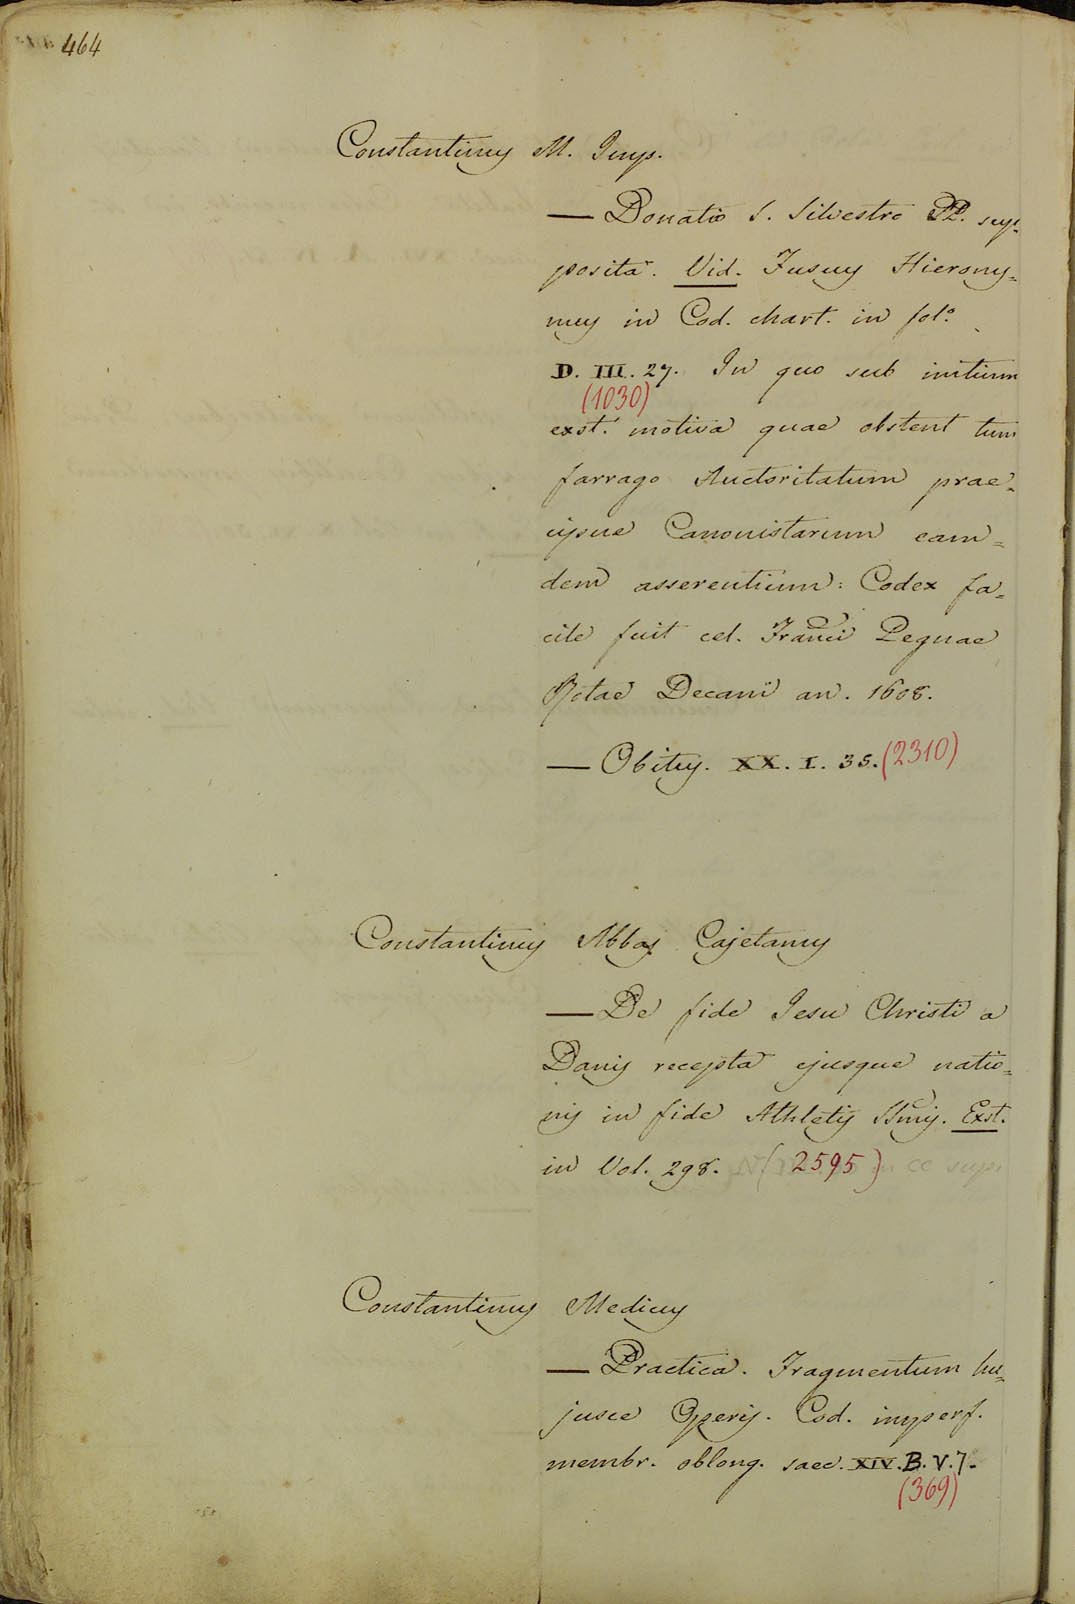 464
Constantinus M. Imp.
— Donatio S. Silvestro PP. sup-
posita. Vid. Fusus Hierony-
mus in Cod. chart. in fol.º
D. III. 27. In quo sub initium
(1030)
exst. motiva quae obstent tum
farrago Auctoritatum prae-
cipue Canonistarum eam-
dem asserentium: Codex fa-
cile fuit cel. Franci Pegnae
Rotae Decani an. 1608.
— Obitus. XX. I. 35. (2310)
Constantinus Abbas Cajetanus
— De fide Jesu Christi a
Danis recepta ejusque natio-
nis in fide Athletis Ssmis. Exst.
in Vol. 298. (2595)
Constantinus Medicus
— Practica. Fragmentum hu-
jusce Operis. Cod. imperf.
membr. oblong. saec. XIV. B. V. 7.
(369)